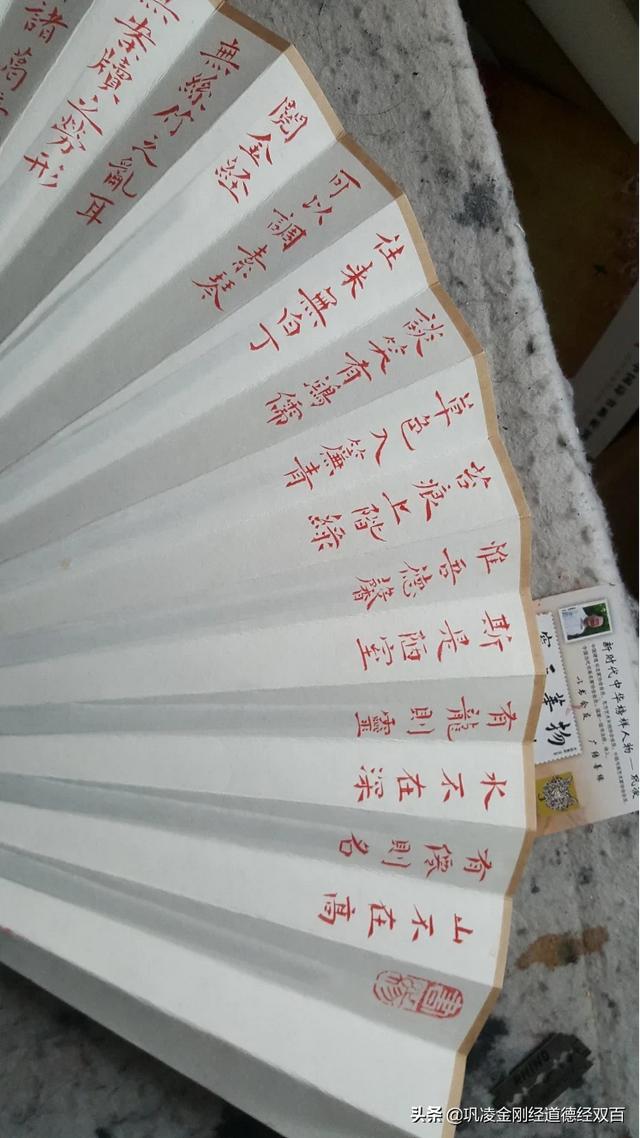 山不在高
有僊則名
水不在深
有龍則靈
斯是陋室
惟吾德馨
苔痕上階綠
草色入簾青
談笑有鴻儒
往來無白丁
可以調素琴
閱金經
無絲竹之亂耳
無案牘之勞形
諸葛
新时代中华榜样人物—巩凌
以书会友 广结善缘
头条 @巩凌金刚经道德经双百